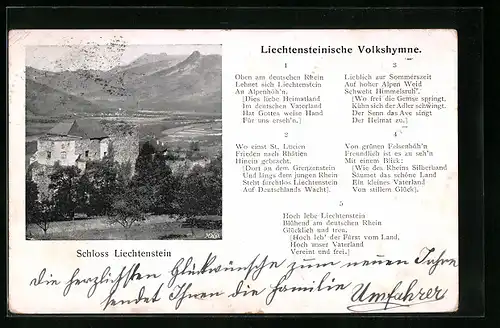 Liechtensteinische Volkshymne.
1
Oben am deutschen Rhein
Lehnet sich Liechtenstein
An Alpenhöh'n.
[Dies liebe Heimatland
Im deutschen Vaterland
Hat Gottes weise Hand
Für uns erseh'n.]
2
Wo einst St. Lucien
Frieden nach Rhätien
Hinein gebracht.
[Dort an dem Grenzenstein
Und längs dem jungen Rhein
Steht furchtlos Liechtenstein
Auf Deutschlands Wacht].
3
Lieblich zur Sommerszeit
Auf hoher Alpen Weid
Schwebt Himmelsruh'.
[Wo frei die Gemse springt,
Kühn sich der Adler schwingt,
Der Senn das Ave singt
Der Heimat zu.]
4
Von grünen Felsenhöh'n
Freundlich ist es zu seh'n
Mit einem Blick:
[Wie des Rheins Silberband
Säumet das schöne Land
Ein kleines Vaterland
Von stillem Glück].
5
Hoch lebe Liechtenstein
Blühend am deutschen Rhein
Glücklich und treu.
[Hoch leb' der Fürst vom Land,
Hoch unser Vaterland
Vereint und frei.]
Schloss Liechtenstein
die herzlichsten Glückwünsche zum neuen Jahre
sendet Ihnen die Familie Umfahrer